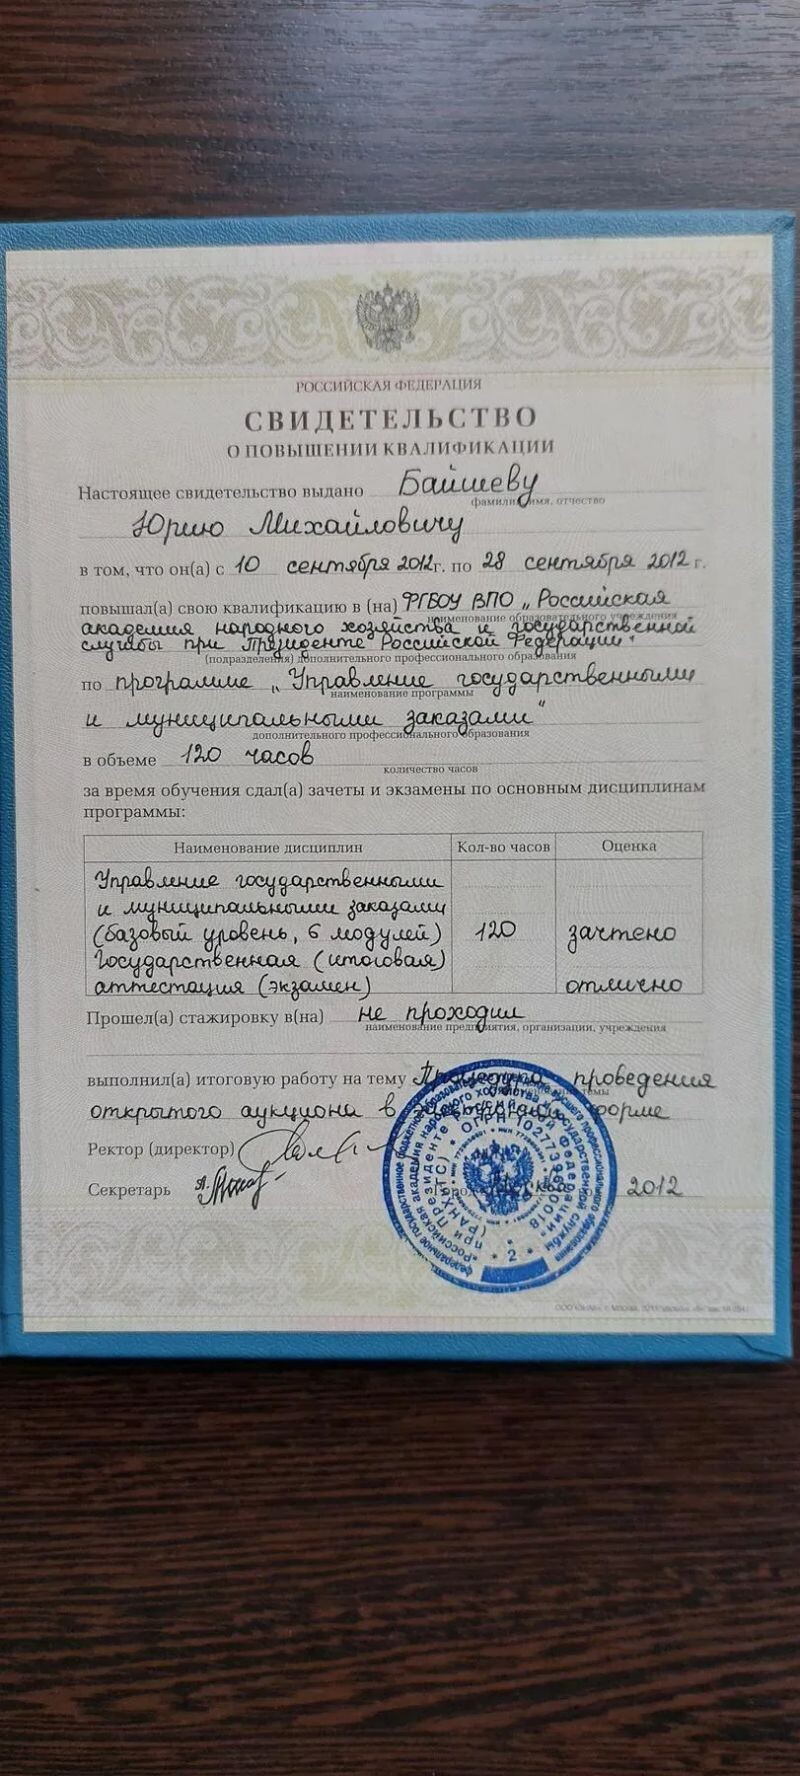 РОССИЙСКАЯ ФЕДЕРАЦИЯ
СВИДЕТЕЛЬСТВО
О ПОВЫШЕНИИ КВАЛИФИКАЦИИ
Настоящее свидетельство выдано Байшеву
фамилия, имя, отчество
Юрию Михайловичу
в том, что он(а) с 10 сентября 2012г. по 28 сентября 2012 г.
повышал(а) свою квалификацию в (на) ФГБОУ ВПО „Российская
наименование образовательного учреждения
академия народного хозяйства и государственной
службы при Президенте Российской Федерации"
(подразделения) дополнительного профессионального образования
по программе „Управление государственными
наименование программы
и муниципальными заказами"
дополнительного профессионального образования
в объеме 120 часов
количество часов
за время обучения сдал(а) зачеты и экзамены по основным дисциплинам
программы:
Наименование дисциплин Кол-во часов Оценка
Управление государственными
и муниципальными заказами
(базовый уровень, 6 модулей) 120 зачтено
Государственная (итоговая)
аттестация (экзамен) отлично
Прошел(а) стажировку в(на) не проходил
наименование предприятия, организации, учреждения
выполнил(а) итоговую работу на тему Процедура проведения
открытого аукциона в электронной форме
Ректор (директор)
Секретарь Город 2012